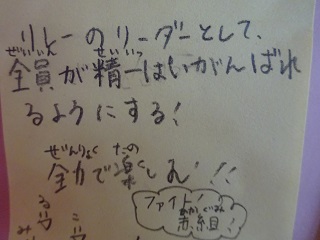 リレーのリーダーとして、
全員が精一ぱいがんばれ
るようにする!
全力で楽しむ!!
ファイト!
赤組!